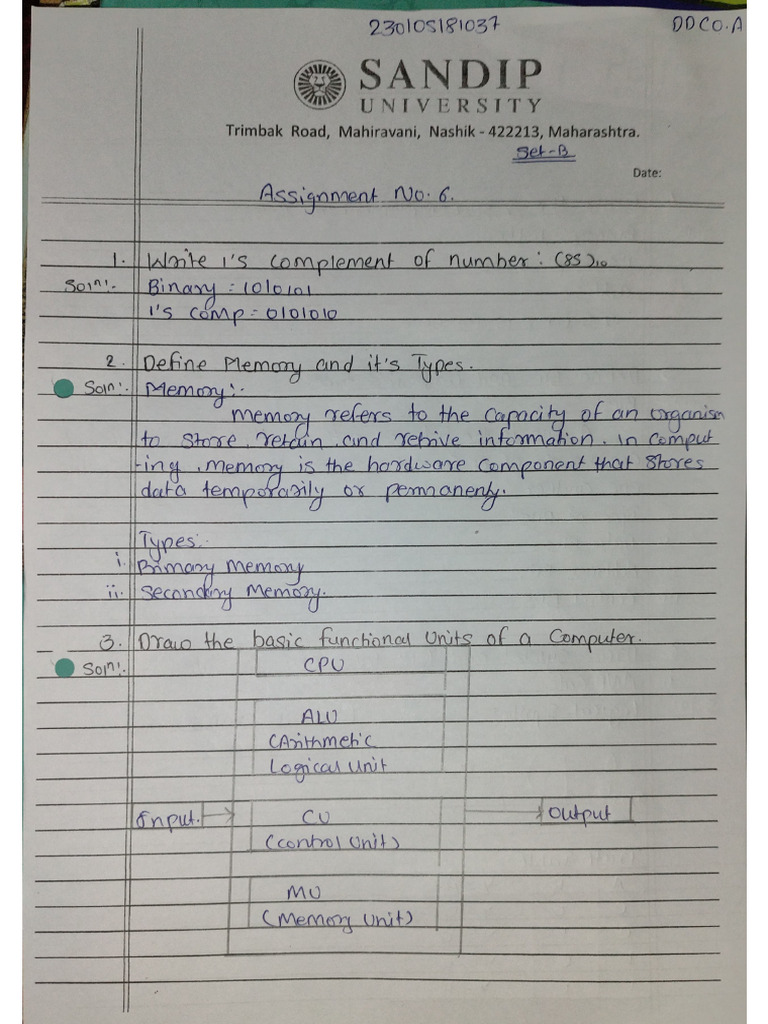 230105181037 DDCO.A
SANDIP
UNIVERSITY
Trimbak Road, Mahiravani, Nashik - 422213, Maharashtra.
Set-B
Date:
Assignment No. 6.
1. Write 1's complement of number: (85)10
Soln:- Binary : 1010101
1's comp = 0101010
2. Define Memory and it's Types.
Soln:- Memory:-
Memory refers to the capacity of an organism
to store, retain, and retrive information. In comput
-ing, memory is the hardware component that stores
data temporarily or permanenty.
Types:-
i. Primary Memory
ii. Secondary Memory.
3. Draw the basic functional Units of a Computer.
Soln:- CPU
ALU
(Arithmetic
Logical Unit
Input. CU Output
(Control Unit)
MU
(Memory Unit)